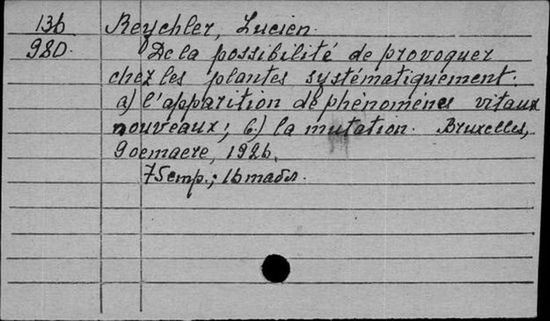 136 Reychler, Lucien.
980. De la possibilité de provoquer
chez les plantes systématiquement.
a) l'apparition de phénomènes vitaux
nouveaux; b) la mutation. Bruxelles,
Goemaere, 1926.
75 emp.;